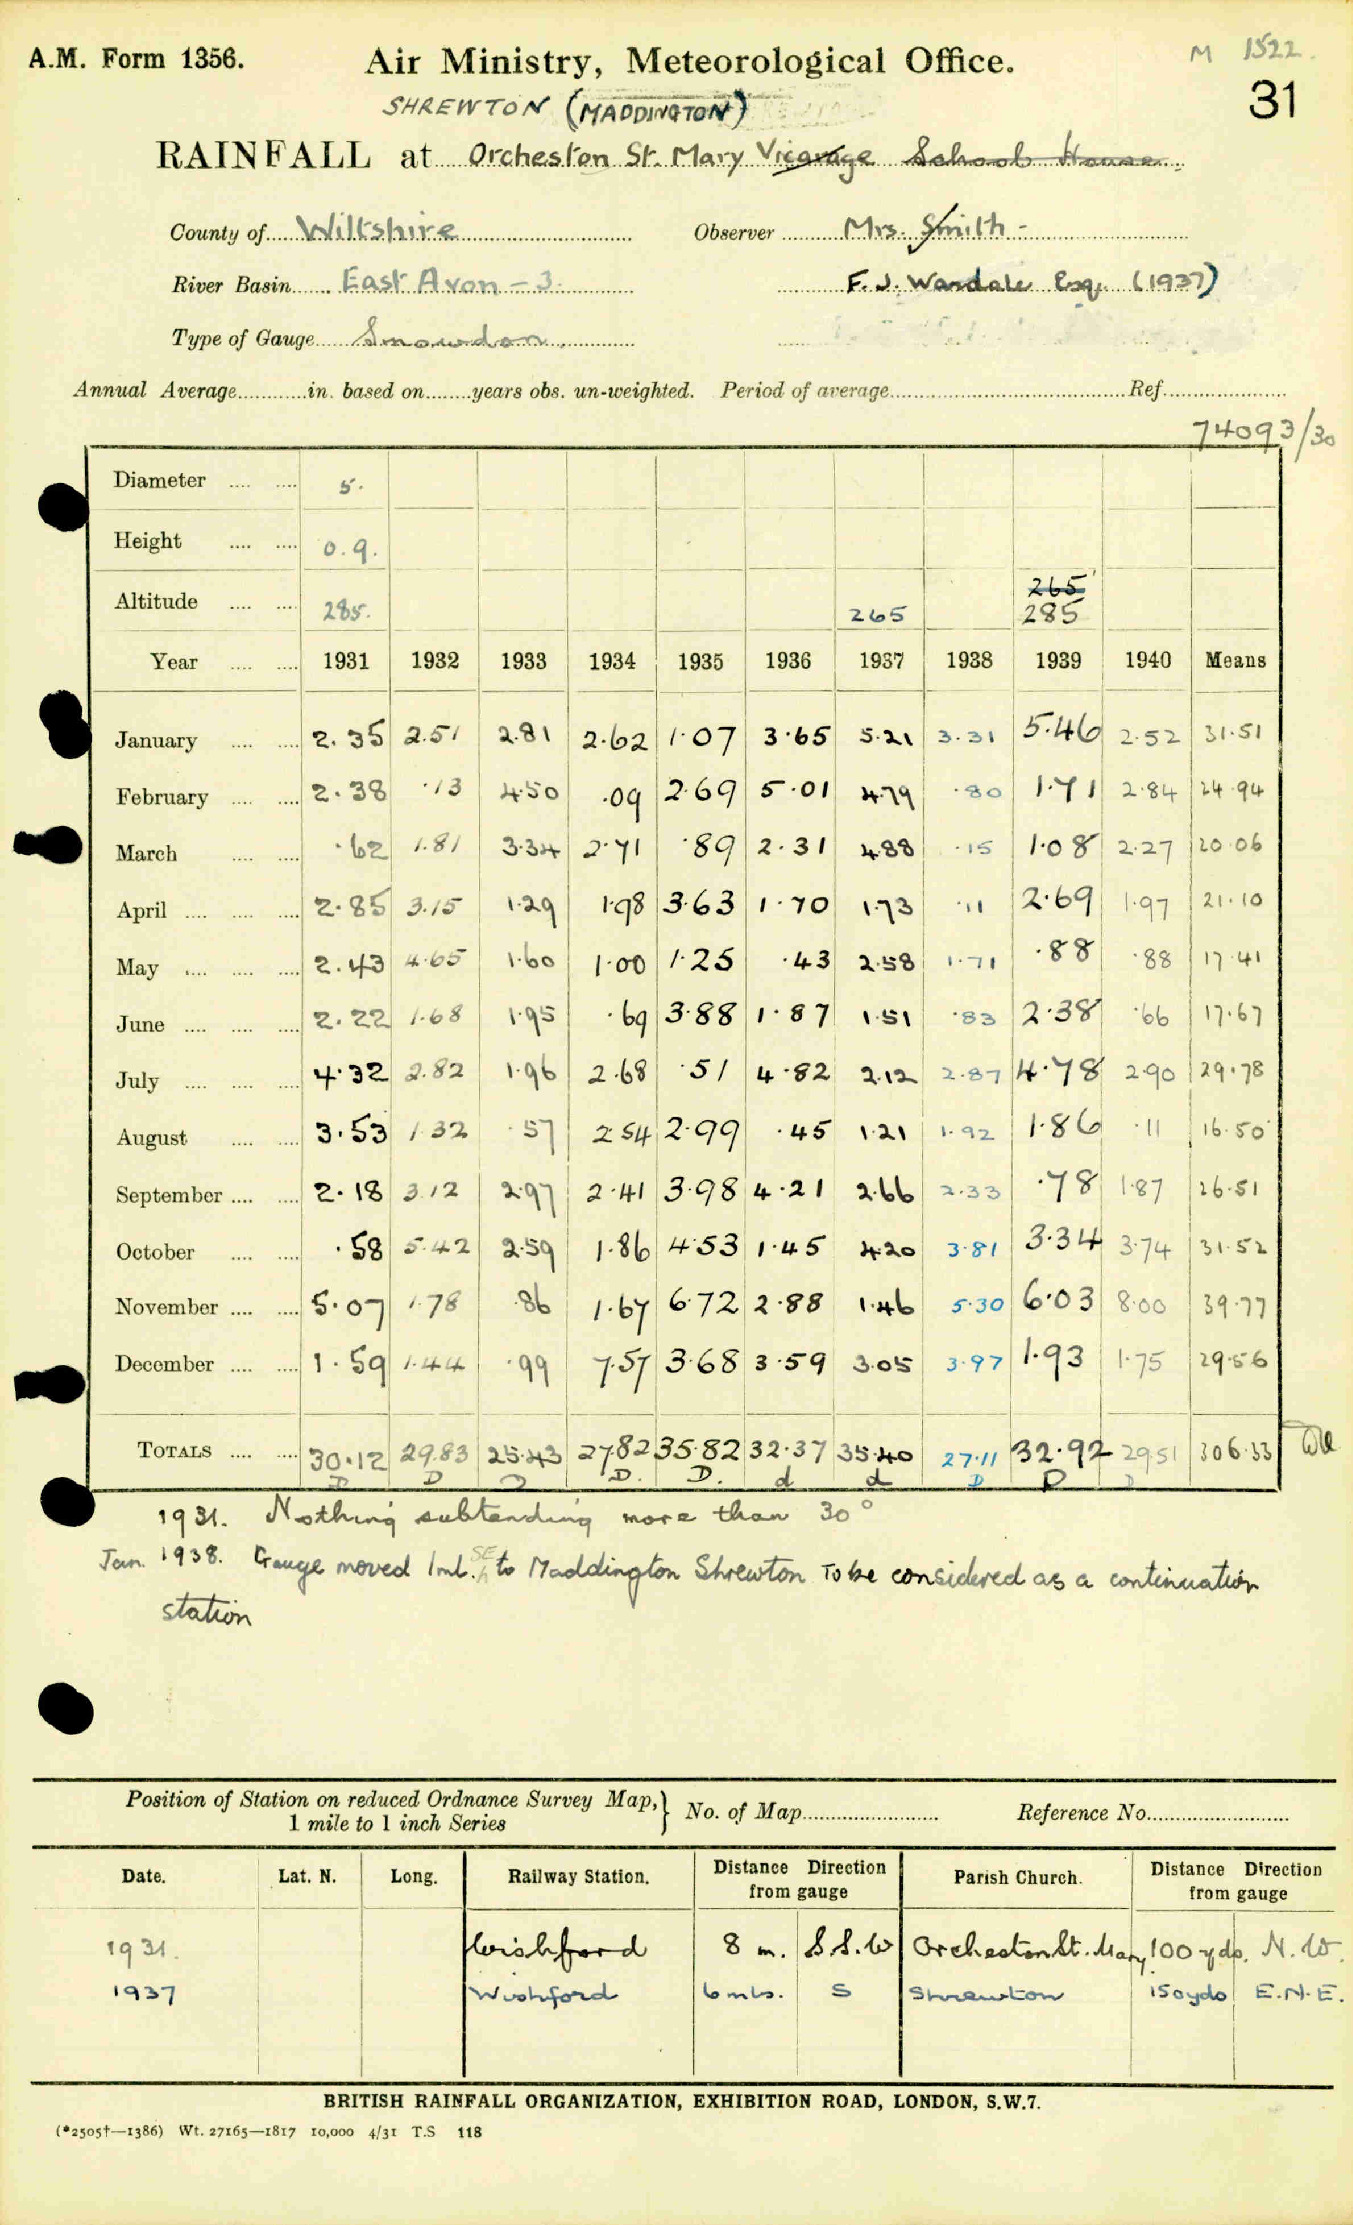 A.M. Form 1356.
Air Ministry, Meteorological Office.
M 1522.
31
SHREWTON (MADDINGTON)
RAINFALL at Orcheston St. Mary Vicarage School House.
County of Wiltshire Observer Mrs. Smith -
River Basin East Avon - 3. F. J. Wardale Esq. (1937)
Type of Gauge Snowdon.
Annual Average in. based on years obs. un-weighted. Period of average Ref.
74093/30
Diameter 5.
Height 0.9.
265
Altitude 285. 265 285
Year 1931 1932 1933 1934 1935 1936 1937 1938 1939 1940 Means
January 2.35 2.51 2.81 2.62 1.07 3.65 5.21 3.31 5.46 2.52 31.51
February 2.38 .13 4.50 .09 2.69 5.01 4.79 .80 1.71 2.84 24.94
March .62 1.81 3.34 2.71 .89 2.31 4.88 .15 1.08 2.27 20.06
April 2.85 3.15 1.29 1.98 3.63 1.70 1.73 .11 2.69 1.97 21.10
May 2.43 4.65 1.60 1.00 1.25 .43 2.58 1.71 .88 .88 17.41
June 2.22 1.68 1.95 .69 3.88 1.87 1.51 .83 2.38 .66 17.67
July 4.32 2.82 1.96 2.68 .51 4.82 2.12 2.87 4.78 2.90 29.78
August 3.53 1.32 .57 2.54 2.99 .45 1.21 1.92 1.86 .11 16.50
September 2.18 3.12 2.97 2.41 3.98 4.21 2.66 2.33 .78 1.87 26.51
October .58 5.42 2.59 1.86 4.53 1.45 4.20 3.81 3.34 3.74 31.52
November 5.07 1.78 .86 1.67 6.72 2.88 1.46 5.30 6.03 8.00 39.77
December 1.59 1.44 .99 7.57 3.68 3.59 3.05 3.97 1.93 1.75 29.56
TOTALS 30.12 29.83 25.43 27.82 35.82 32.37 35.40 27.11 32.92 29.51 306.33
D D D D. D. d d D D D
1931. Nothing subtending more than 30°
Jan. 1938. Gauge moved 1ml. SE to Maddington Shrewton To be considered as a continuation
station
Position of Station on reduced Ordnance Survey Map,} No. of Map Reference No.
1 mile to 1 inch Series
Date. Lat. N. Long. Railway Station. Distance Direction from gauge Parish Church. Distance Direction from gauge
1931. Wishford 8 m. S.S.W Orcheston St. Mary 100 yds. N.W.
1937 Wishford 6 mls. S Shrewton 150 yds E.N.E.
BRITISH RAINFALL ORGANIZATION, EXHIBITION ROAD, LONDON, S.W.7.
(*2505†—1386) Wt. 27165—1817 10,000 4/31 T.S 118